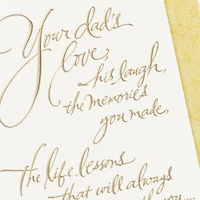 Your dad's
love,
his laugh,
the memories
you made,
the life lessons
that will always